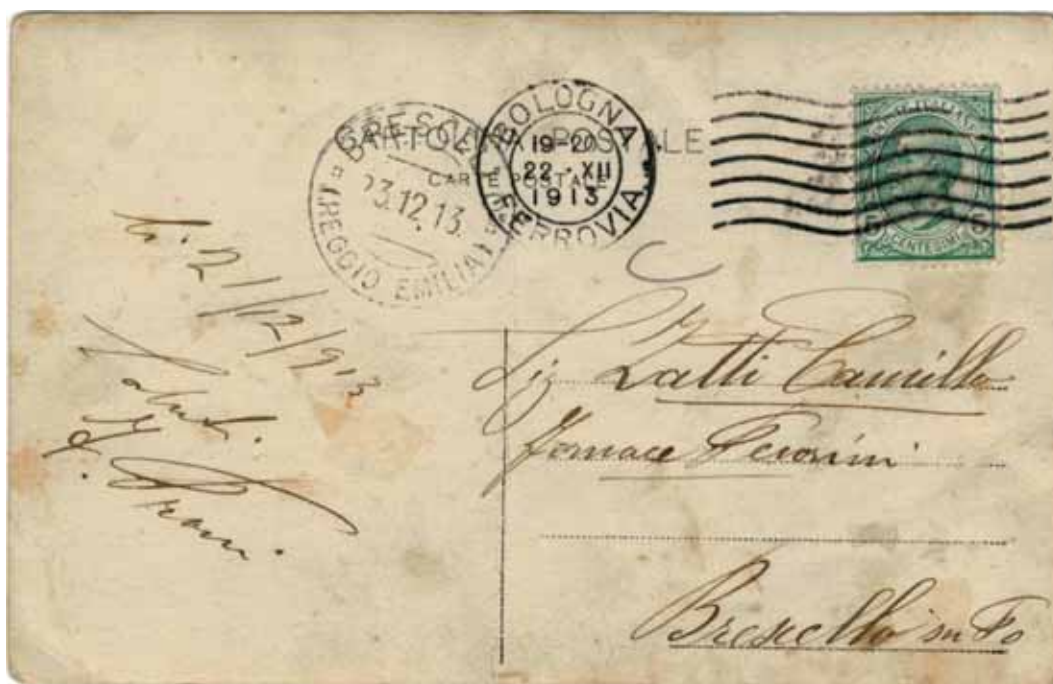 CARTOLINA POSTALE
CARTE POSTALE
BRESCELLO
(REGGIO EMILIA)
23.12.13
BOLOGNA
FERROVIA
19-20
22·XII
1913
POSTE ITALIANE
5 CENTESIMI 5
21/12/913
Saluti
Sig. Zatti Camillo
Fornace Pecorini
Brescello su Po